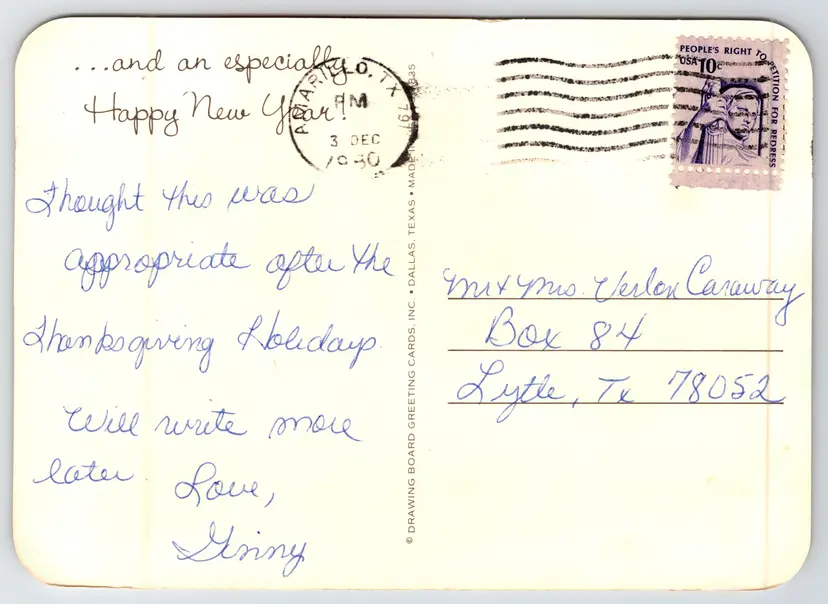 ...and an especially
Happy New Year!
AMARILLO, TX 791
PM
3 DEC
1980
PEOPLE'S RIGHT TO PETITION FOR REDRESS
USA 10c
Thought this was
appropriate after the
Thanksgiving Holidays.
Will write more
later.
Love,
Ginny
© DRAWING BOARD GREETING CARDS, INC. • DALLAS, TEXAS • MADE IN
Mr & Mrs. Verlon Caraway
Box 84
Lytle, Tx 78052